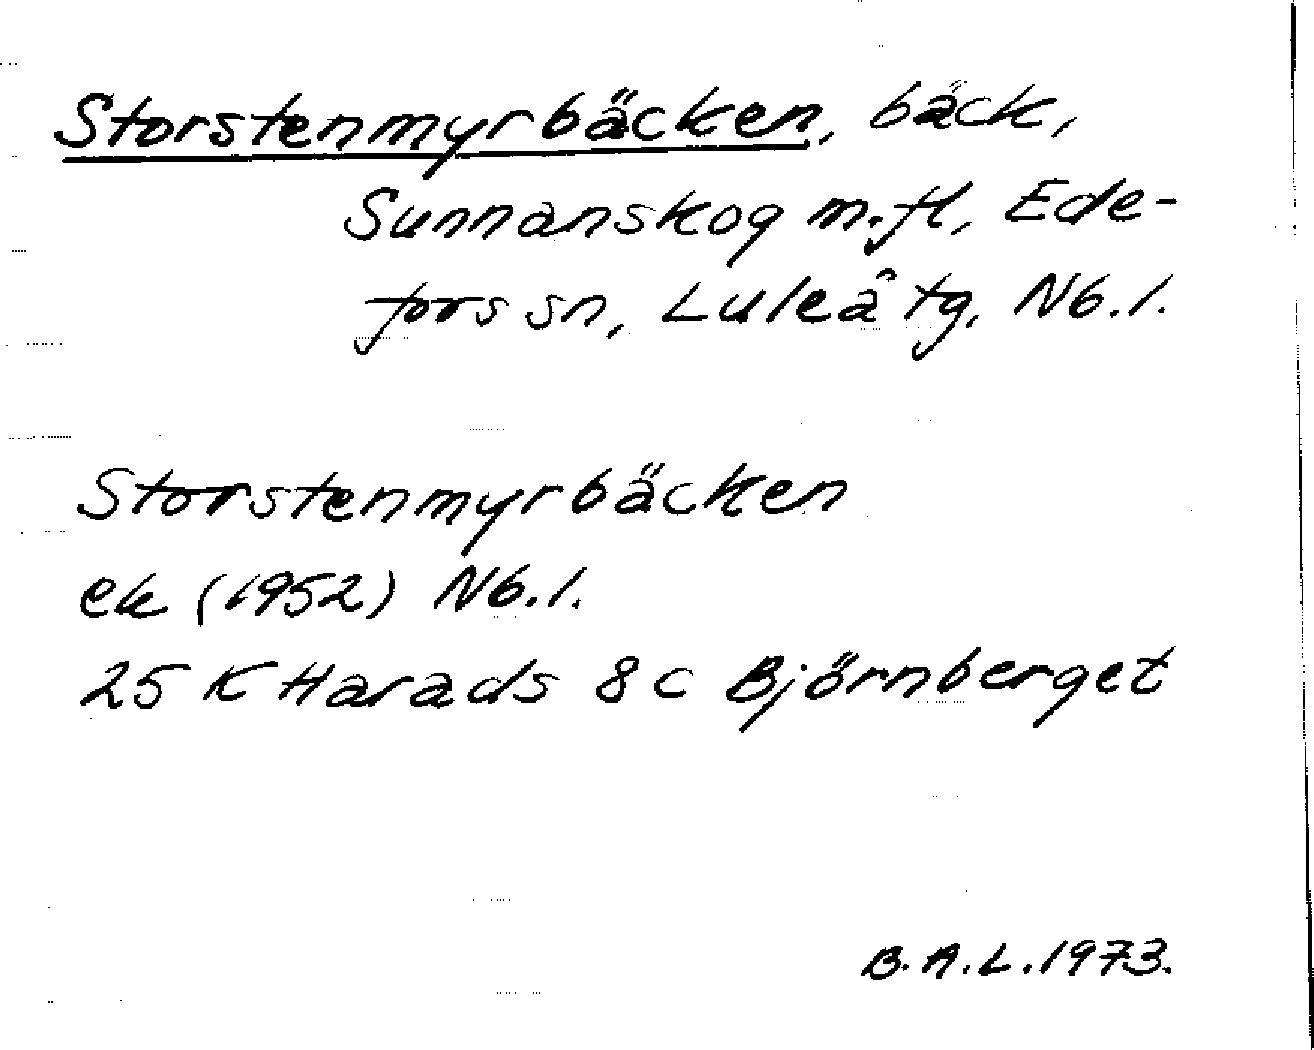 Storstenmyrbäcken, bäck,
Sunnanskog m.fl, Ede-
fors sn, Luleå tg, Nb.l.
Storstenmyrbäcken
ek (1952) Nb.l.
25 K Harads 8 c Björnberget
B.A.L. 1973.